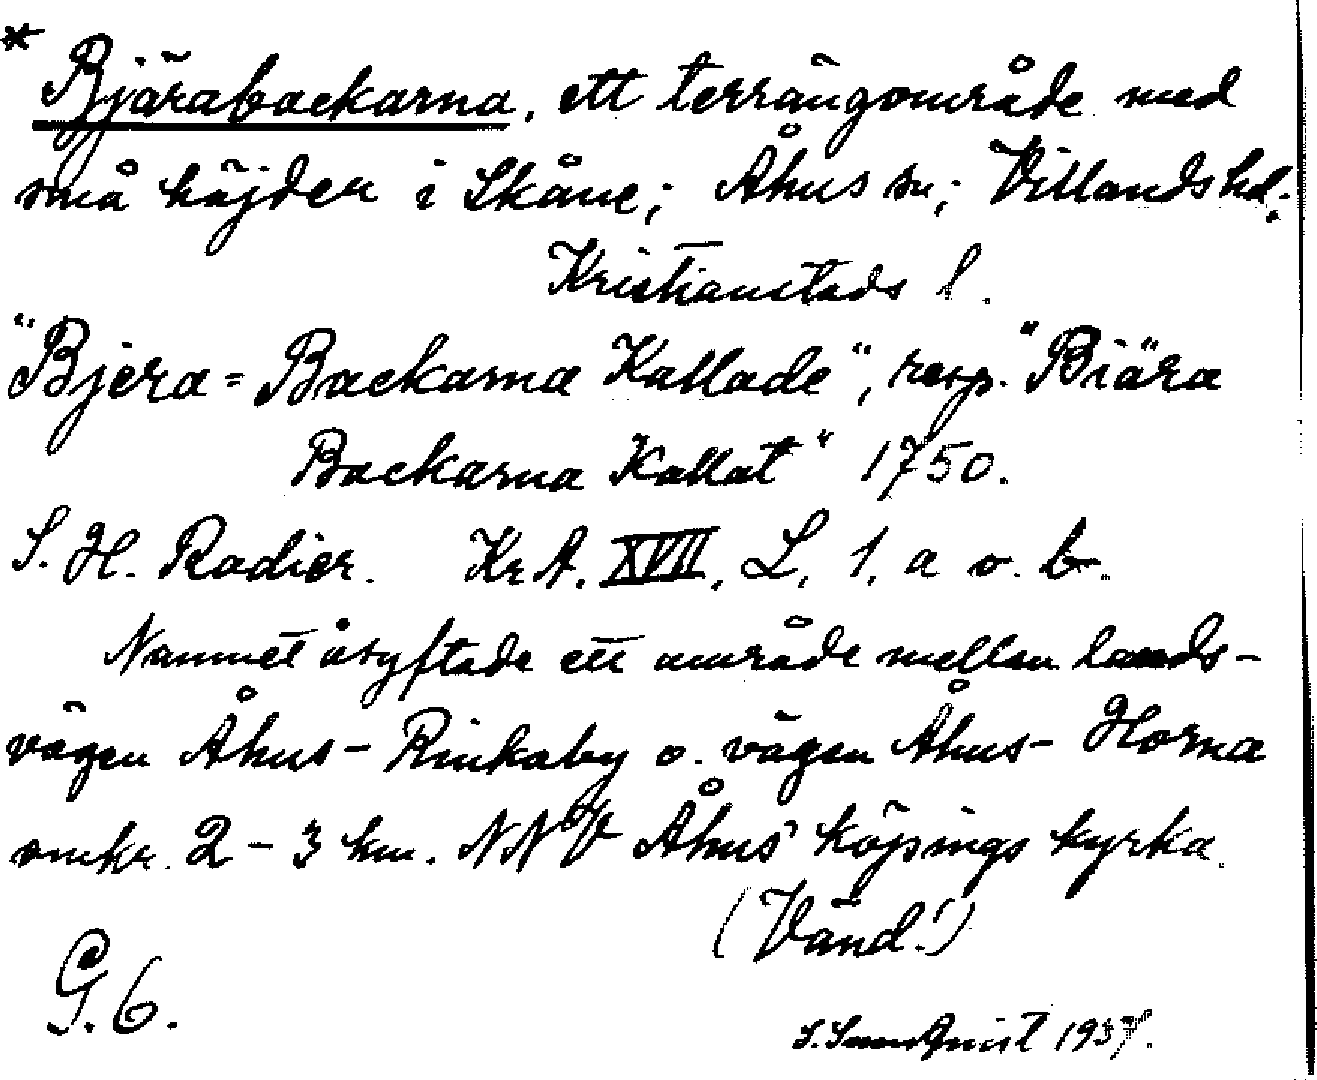 * Bjärabackarna, ett terrängområde med
små höjder i Skåne; Åhus sn; Villands hd;
Kristianstads l.
"Bjera=Backarna Kallade", resp. "Biära
Backarna Kallat" 1750.
S. H. Radier. KrA. XVII, L, 1, a o. b.
Namnet åsyftade ett område mellan lands-
vägen Åhus-Rinkaby o. vägen Åhus-Horna
omkr. 2-3 km. NNV Åhus köpings kyrka.
(Vänd!)
G. 6.
1937.